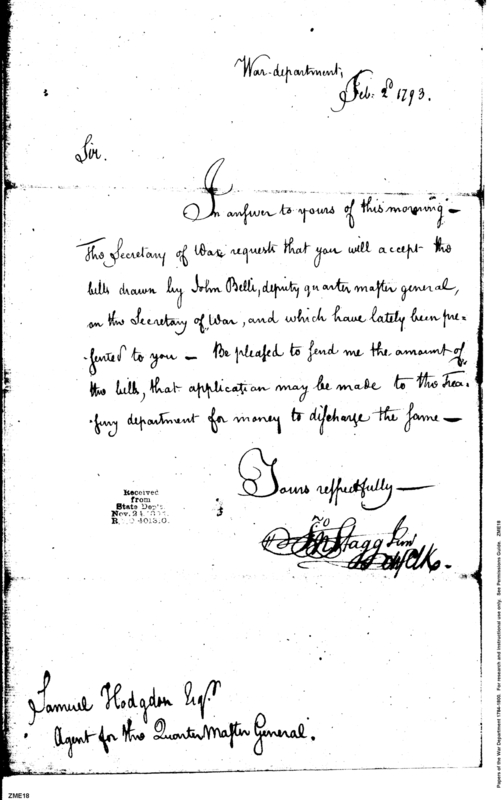 War-department,
Feb: 2d 1793.
Sir.
In answer to yours of this morning —
The Secretary of War requests that you will accept the
bills drawn by John Belli, deputy quarter master general,
on the Secretary of War, and which have lately been pre=
=sented to you — Be pleased to send me the amount of
the bills, that application may be made to the Trea=
=sury department for money to discharge the same —
Yours respectfully —
Jno Stagg Junr
Received
from
State Dept.
Nov. 21
4013.0.
Samuel Hodgdon Esqr.
Agent for the Quarter Master General.
ZME18
Papers of the War Department 1784-1800. For research and instructional use only. See Permissions Guide. ZME18